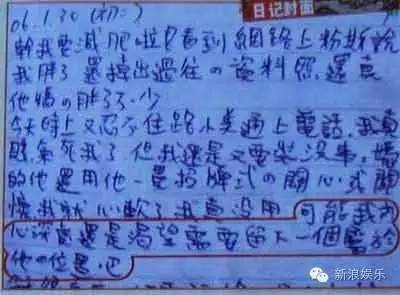 日记封面
06.1.30 (初二)
幹我要減肥啦!看到網路上粉斯說
我胖了還掉出過往の資料照,還真
他媽の胖了不少
今天晚上又忍不住跟小美通上電話,我真
氣死我了但我還是又要裝沒事,媽
的他還用他一曼招牌式の關心式關
懷我就心軟了我真沒用可能我內
心深處還是渴望需要留下一個屬於
他の位置,
新浪娱乐